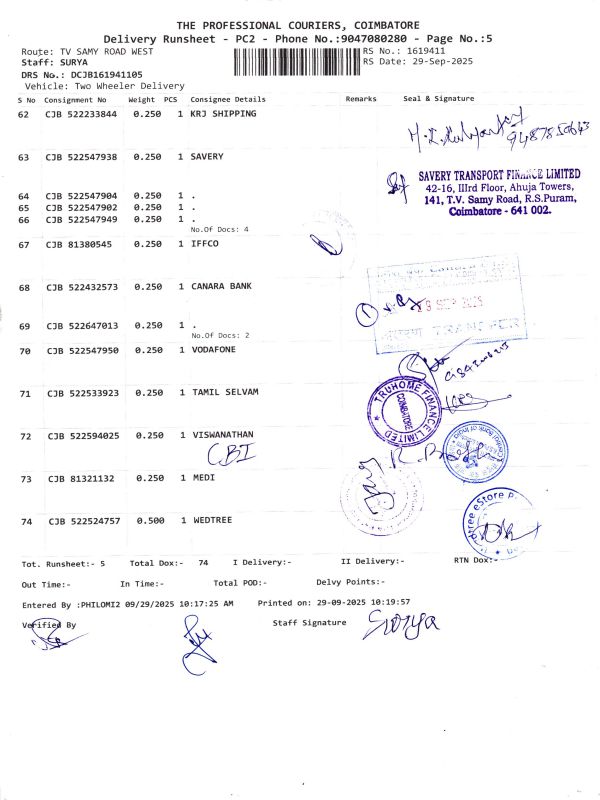 THE PROFESSIONAL COURIERS, COIMBATORE
Delivery Runsheet - PC2 - Phone No.:9047080280 - Page No.:5
Route: TV SAMY ROAD WEST RS No.: 1619411
Staff: SURYA RS Date: 29-Sep-2025
DRS No.: DCJB161941105
Vehicle: Two Wheeler Delivery
S No Consignment No Weight PCS Consignee Details Remarks Seal & Signature
62 CJB 522233844 0.250 1 KRJ SHIPPING
63 CJB 522547938 0.250 1 SAVERY
SAVERY TRANSPORT FINANCE LIMITED
42-16, IIIrd Floor, Ahuja Towers,
141, T.V. Samy Road, R.S.Puram,
Coimbatore - 641 002.
64 CJB 522547904 0.250 1 .
65 CJB 522547902 0.250 1 .
66 CJB 522547949 0.250 1 .
No.Of Docs: 4
67 CJB 81380545 0.250 1 IFFCO
68 CJB 522432573 0.250 1 CANARA BANK
SEP
TRANSFER
69 CJB 522647013 0.250 1 .
No.Of Docs: 2
70 CJB 522547950 0.250 1 VODAFONE
71 CJB 522533923 0.250 1 TAMIL SELVAM
TRUHOME FINANCE LIMITED
COIMBATORE
72 CJB 522594025 0.250 1 VISWANATHAN
CBI
73 CJB 81321132 0.250 1 MEDI
74 CJB 522524757 0.500 1 WEDTREE
Tot. Runsheet:- 5 Total Dox:- 74 I Delivery:- II Delivery:- RTN Dox:-
Out Time:- In Time:- Total POD:- Delvy Points:-
Entered By :PHILOMI2 09/29/2025 10:17:25 AM Printed on: 29-09-2025 10:19:57
Verified By Staff Signature Surya